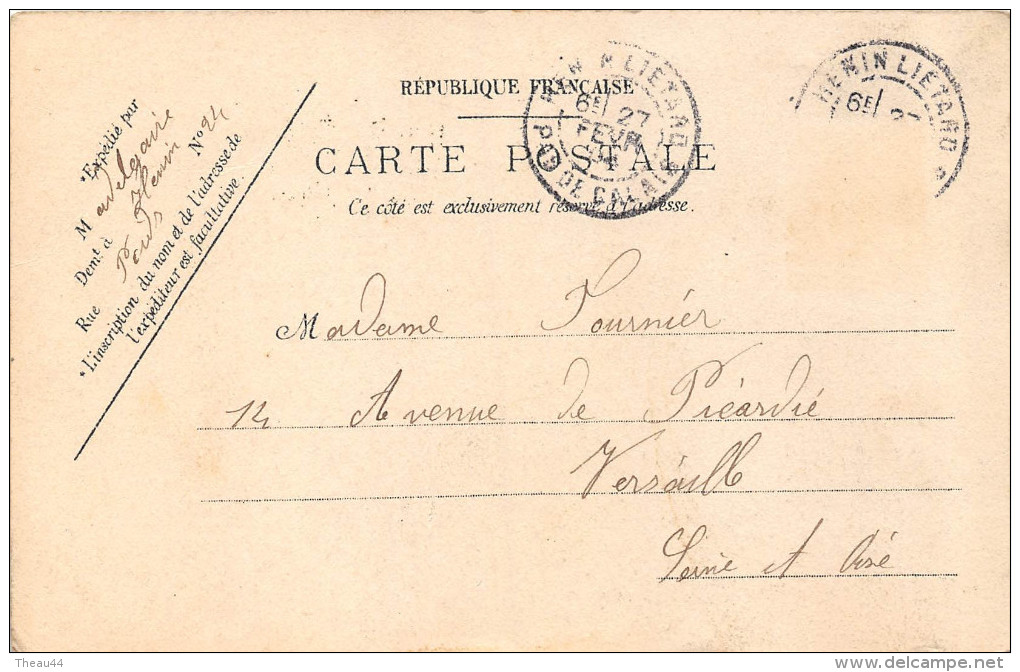 RÉPUBLIQUE FRANÇAISE
CARTE POSTALE
Ce côté est exclusivement réservé à l'adresse.
HENIN LIETARD
6E 27
FEVR
PAS DE CALAIS
HENIN LIETARD
6E 27
*Expédiée par
M
Demt à Henin
Rue N° 24
*L'inscription du nom et de l'adresse de
l'expéditeur est facultative.
Madame Fournier
12 Avenue de Picardie
Versaille
Seine et Oise
Theau44
delcampe.net